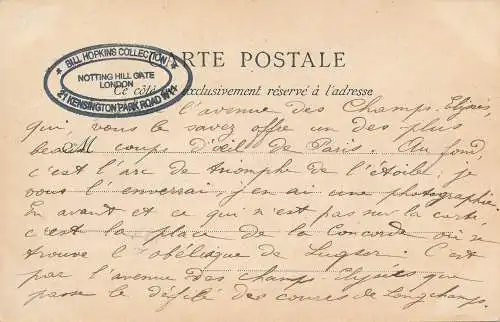 ★ BILL HOPKINS COLLECTION ★
NOTTING HILL GATE
LONDON
21 KENSINGTON PARK ROAD W11
CARTE POSTALE
Ce côté exclusivement réservé à l'adresse
l'avenue des Champs-Elysées,
qui, vous le savez offre un des plus
beaux coups d'œil de Paris. Au fond,
M
c'est l'arc de triomphe de l'étoile; je
vous l'enverrai, j'en ai une photographie.
En avant et ce qui n'est pas sur la carte,
c'est la place de la Concorde où se
trouve l'obélisque de Luqsor. C'est
par l'avenue des champs-Elysées que
passe le défilé des courses de Longchamp.